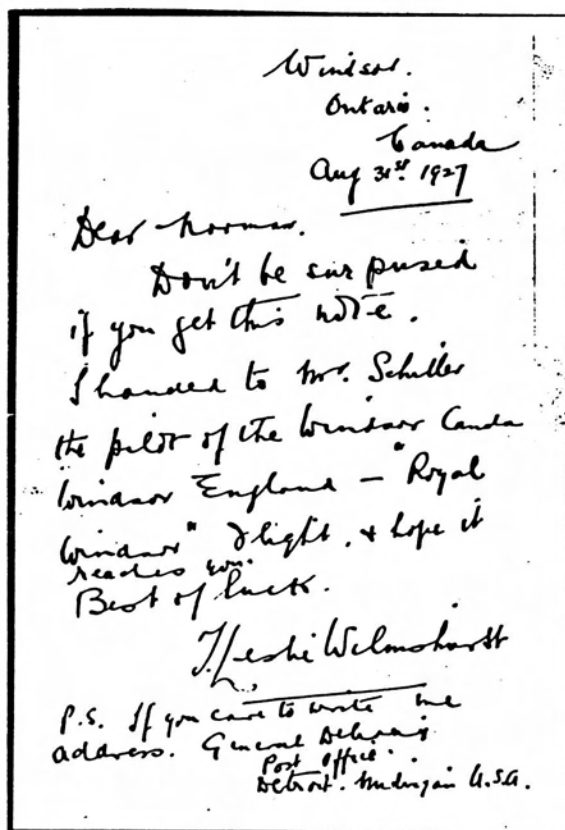 Windsor.
Ontario.
Canada
Aug 31st. 1927
Dear Norman.
Don't be surpused
if you get this note.
I handed to Mr. Schiller
the pilot of the Windsor Canda
Windsor England - "Royal
Windsor" flight, & hope it
reaches you.
Best of luck.
T. Leslie Wilmshurst
P.S. If you care to write me
address. General Delivery
Post Office.
Detroit. Michigan U.S.A.